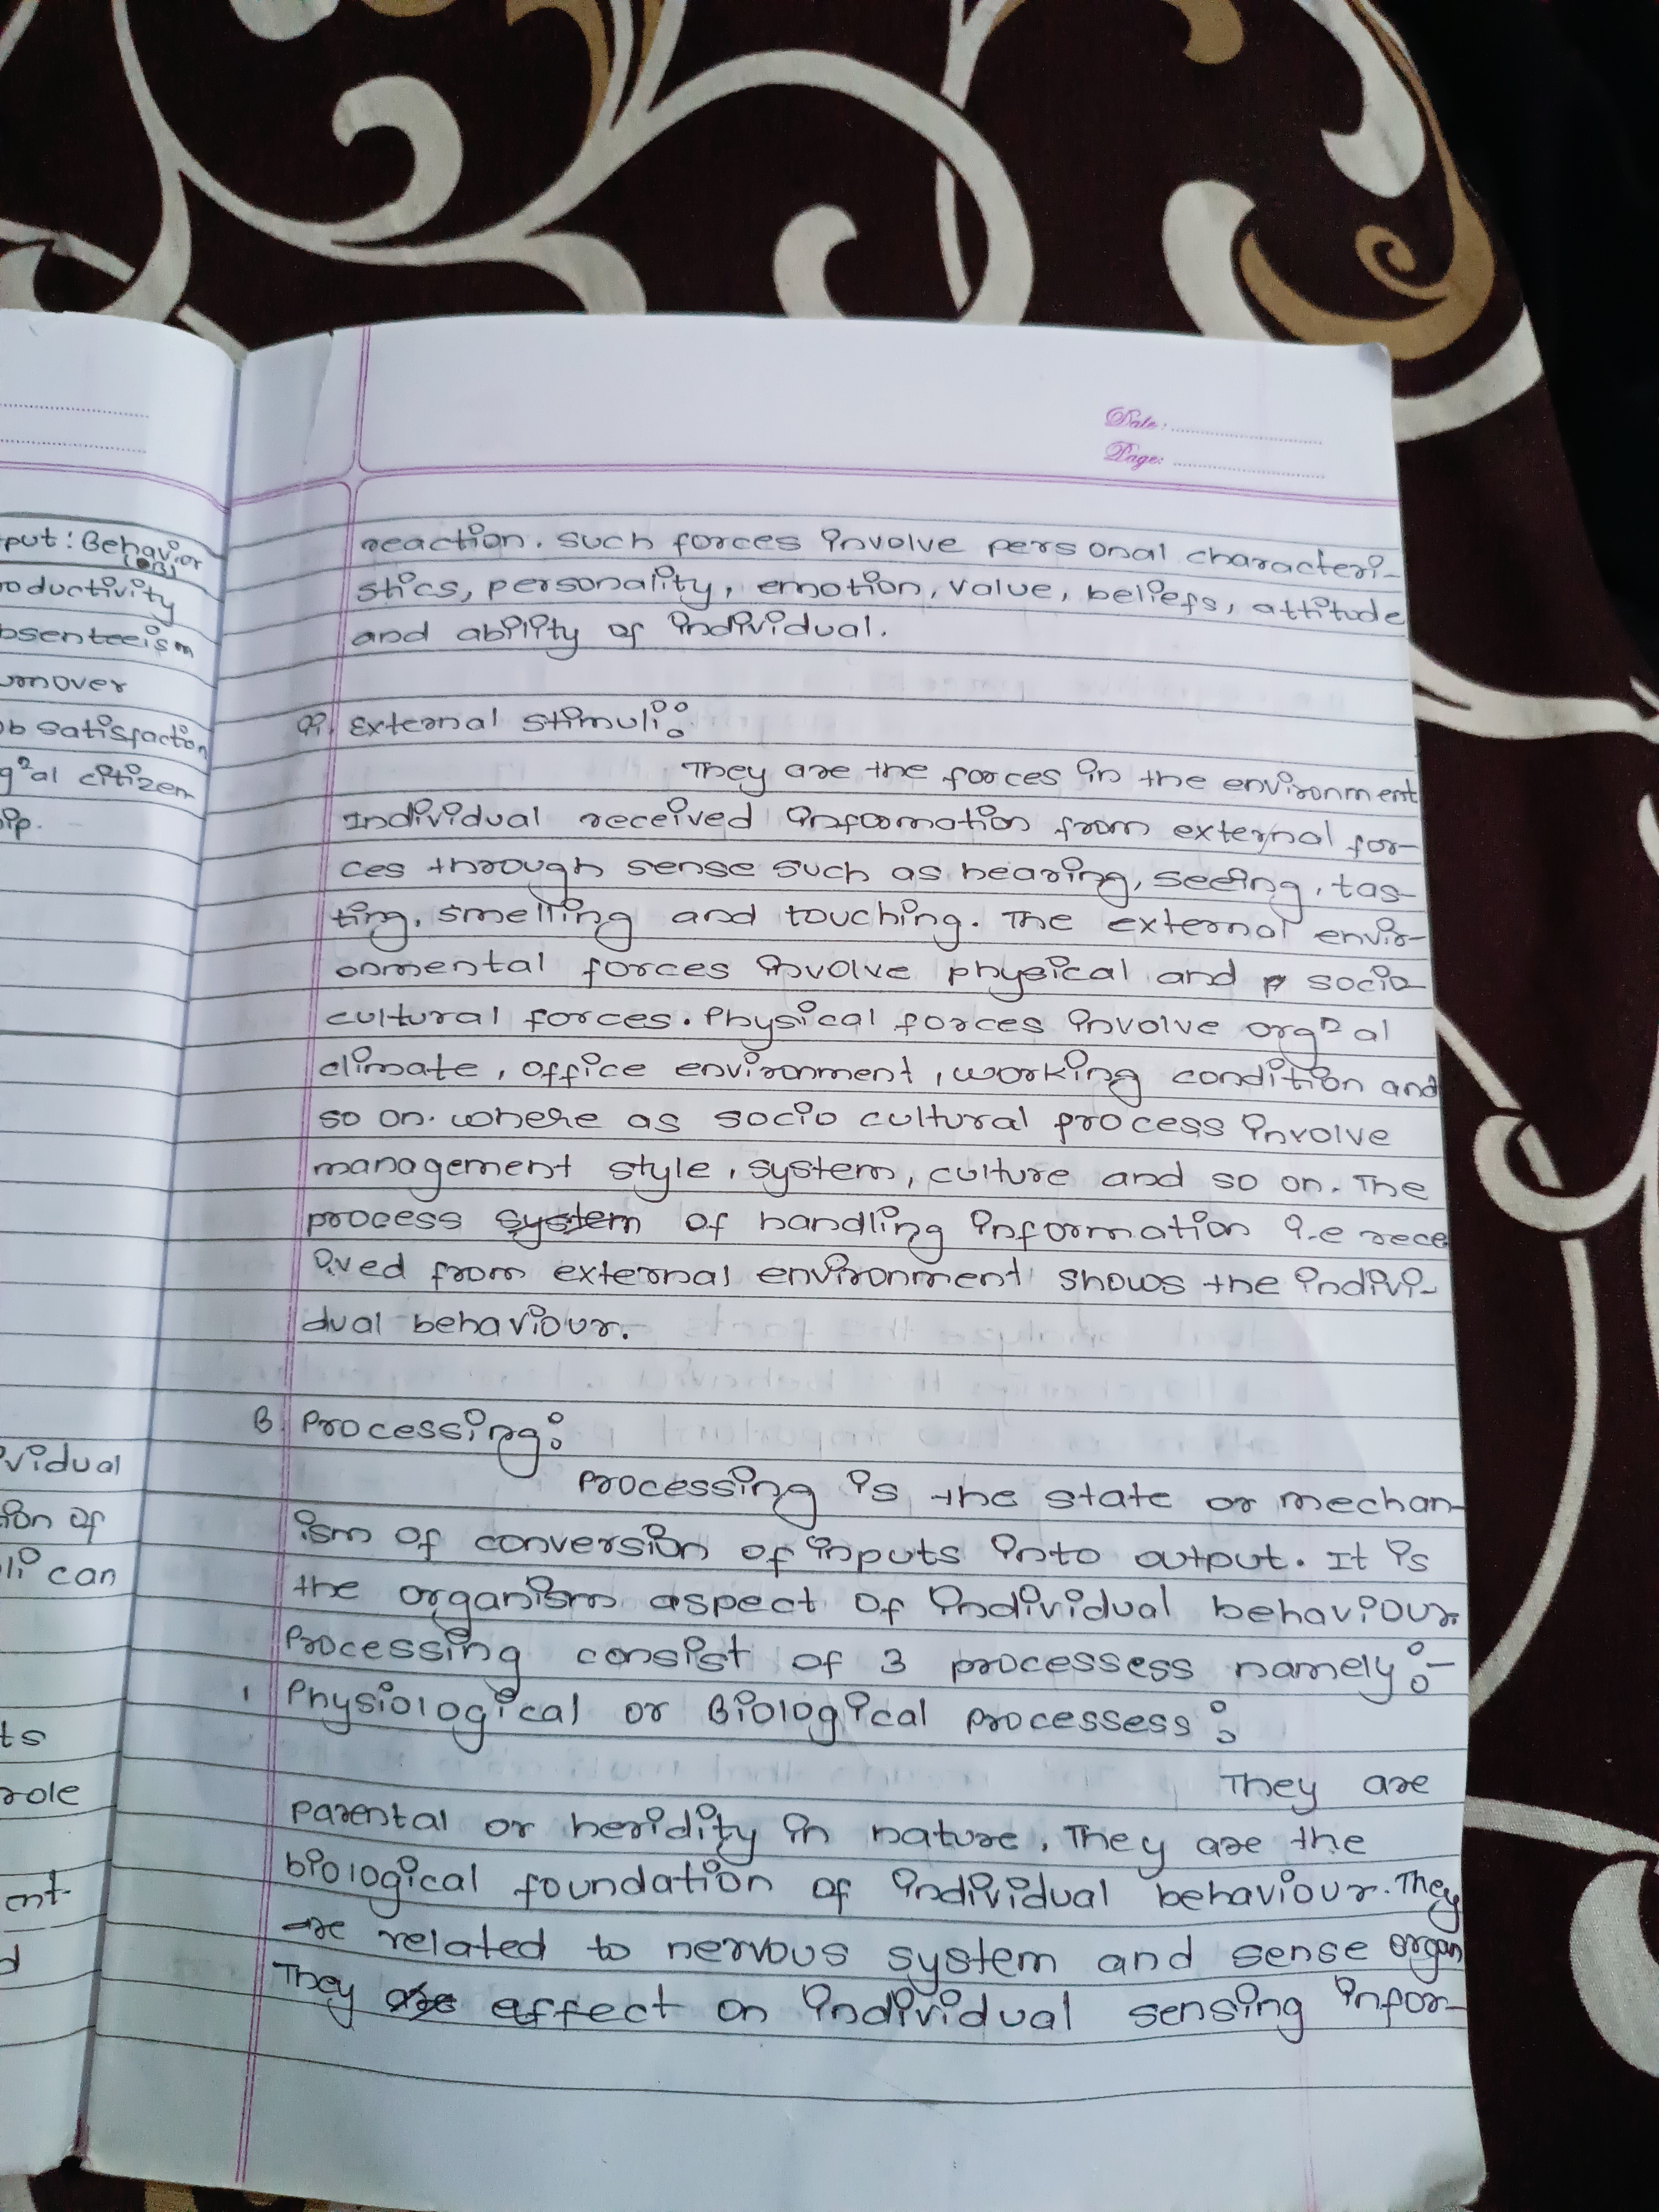 put: Behavior
(OB)
oductivity
bsenteeism
urnover
ob satisfaction
g²al citizen
ip.
vidual
ion of
li can
ts
role
ent
d
Date:
Page:
reaction. Such forces involve personal characteri-
stics, personality, emotion, value, beliefs, attitude
and ability of individual.
ii. External stimuli:
They are the forces in the environment
Individual received information from external for-
ces through sense such as hearing, seeing, tas-
ting, smelling and touching. The external envir-
onmental forces involve physical and socio
cultural forces. Physical forces involve orgⁿal
climate, office environment, working condition and
so on. where as socio cultural process involve
management style, system, culture and so on. The
process system of handling information i.e rece
ived from external environment shows the indivi-
dual behaviour.
B. Processing:
Processing is the state or mechan-
ism of conversion of inputs into output. It is
the organism aspect of individual behaviour.
Processing consist of 3 processess namely:-
1 Physiological or Biological processess:
They are
parental or heridity in nature. They are the
biological foundation of individual behaviour. They
are related to nervous system and sense organ
They are effect on individual sensing infor-